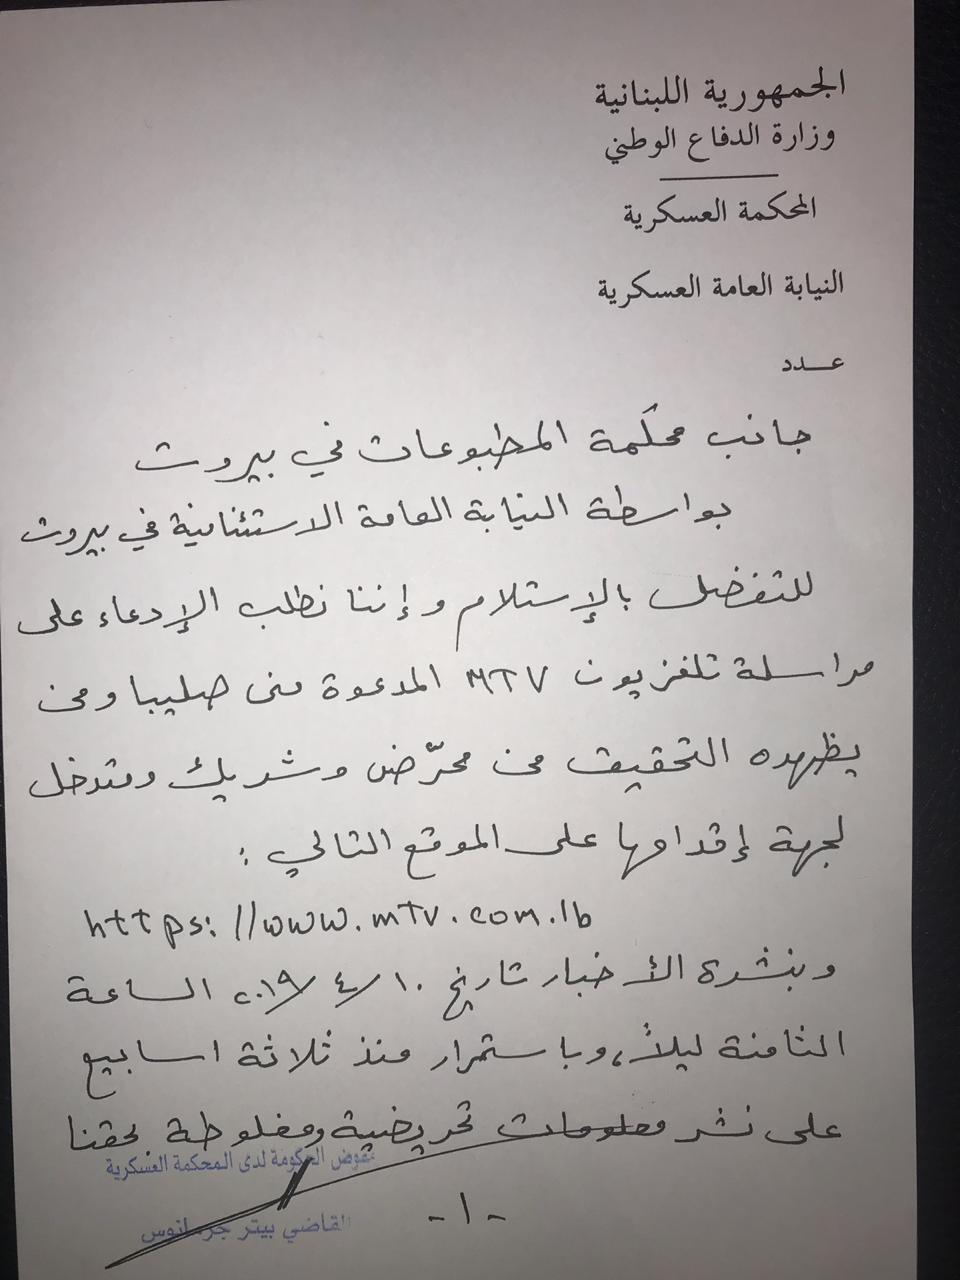 الجمهورية اللبنانية
وزارة الدفاع الوطني
المحكمة العسكرية
النيابة العامة العسكرية
عدد
جانب محكمة المطبوعات في بيروت
بواسطة النيابة العامة الاستئنافية في بيروت
للتفضل بالإستلام وإننا نطلب الإدعاء على
مراسلة تلفزيون MTV المدعوة منى صليبا ومن
يظهره التحقيق من محرّض وشريك ومتدخل
لجهة إقدامها على الموقع التالي :
https://www.mtv.com.lb
وبنشرة الأخبار تاريخ ١٠/٤/٢٠١٩ الساعة
الثامنة ليلاً، وباستمرار منذ ثلاثة اسابيع
على نشر معلومات تحريضية ومغلوطة بحقنا
مفوض الحكومة لدى المحكمة العسكرية
القاضي بيتر جرمانوس
-١-